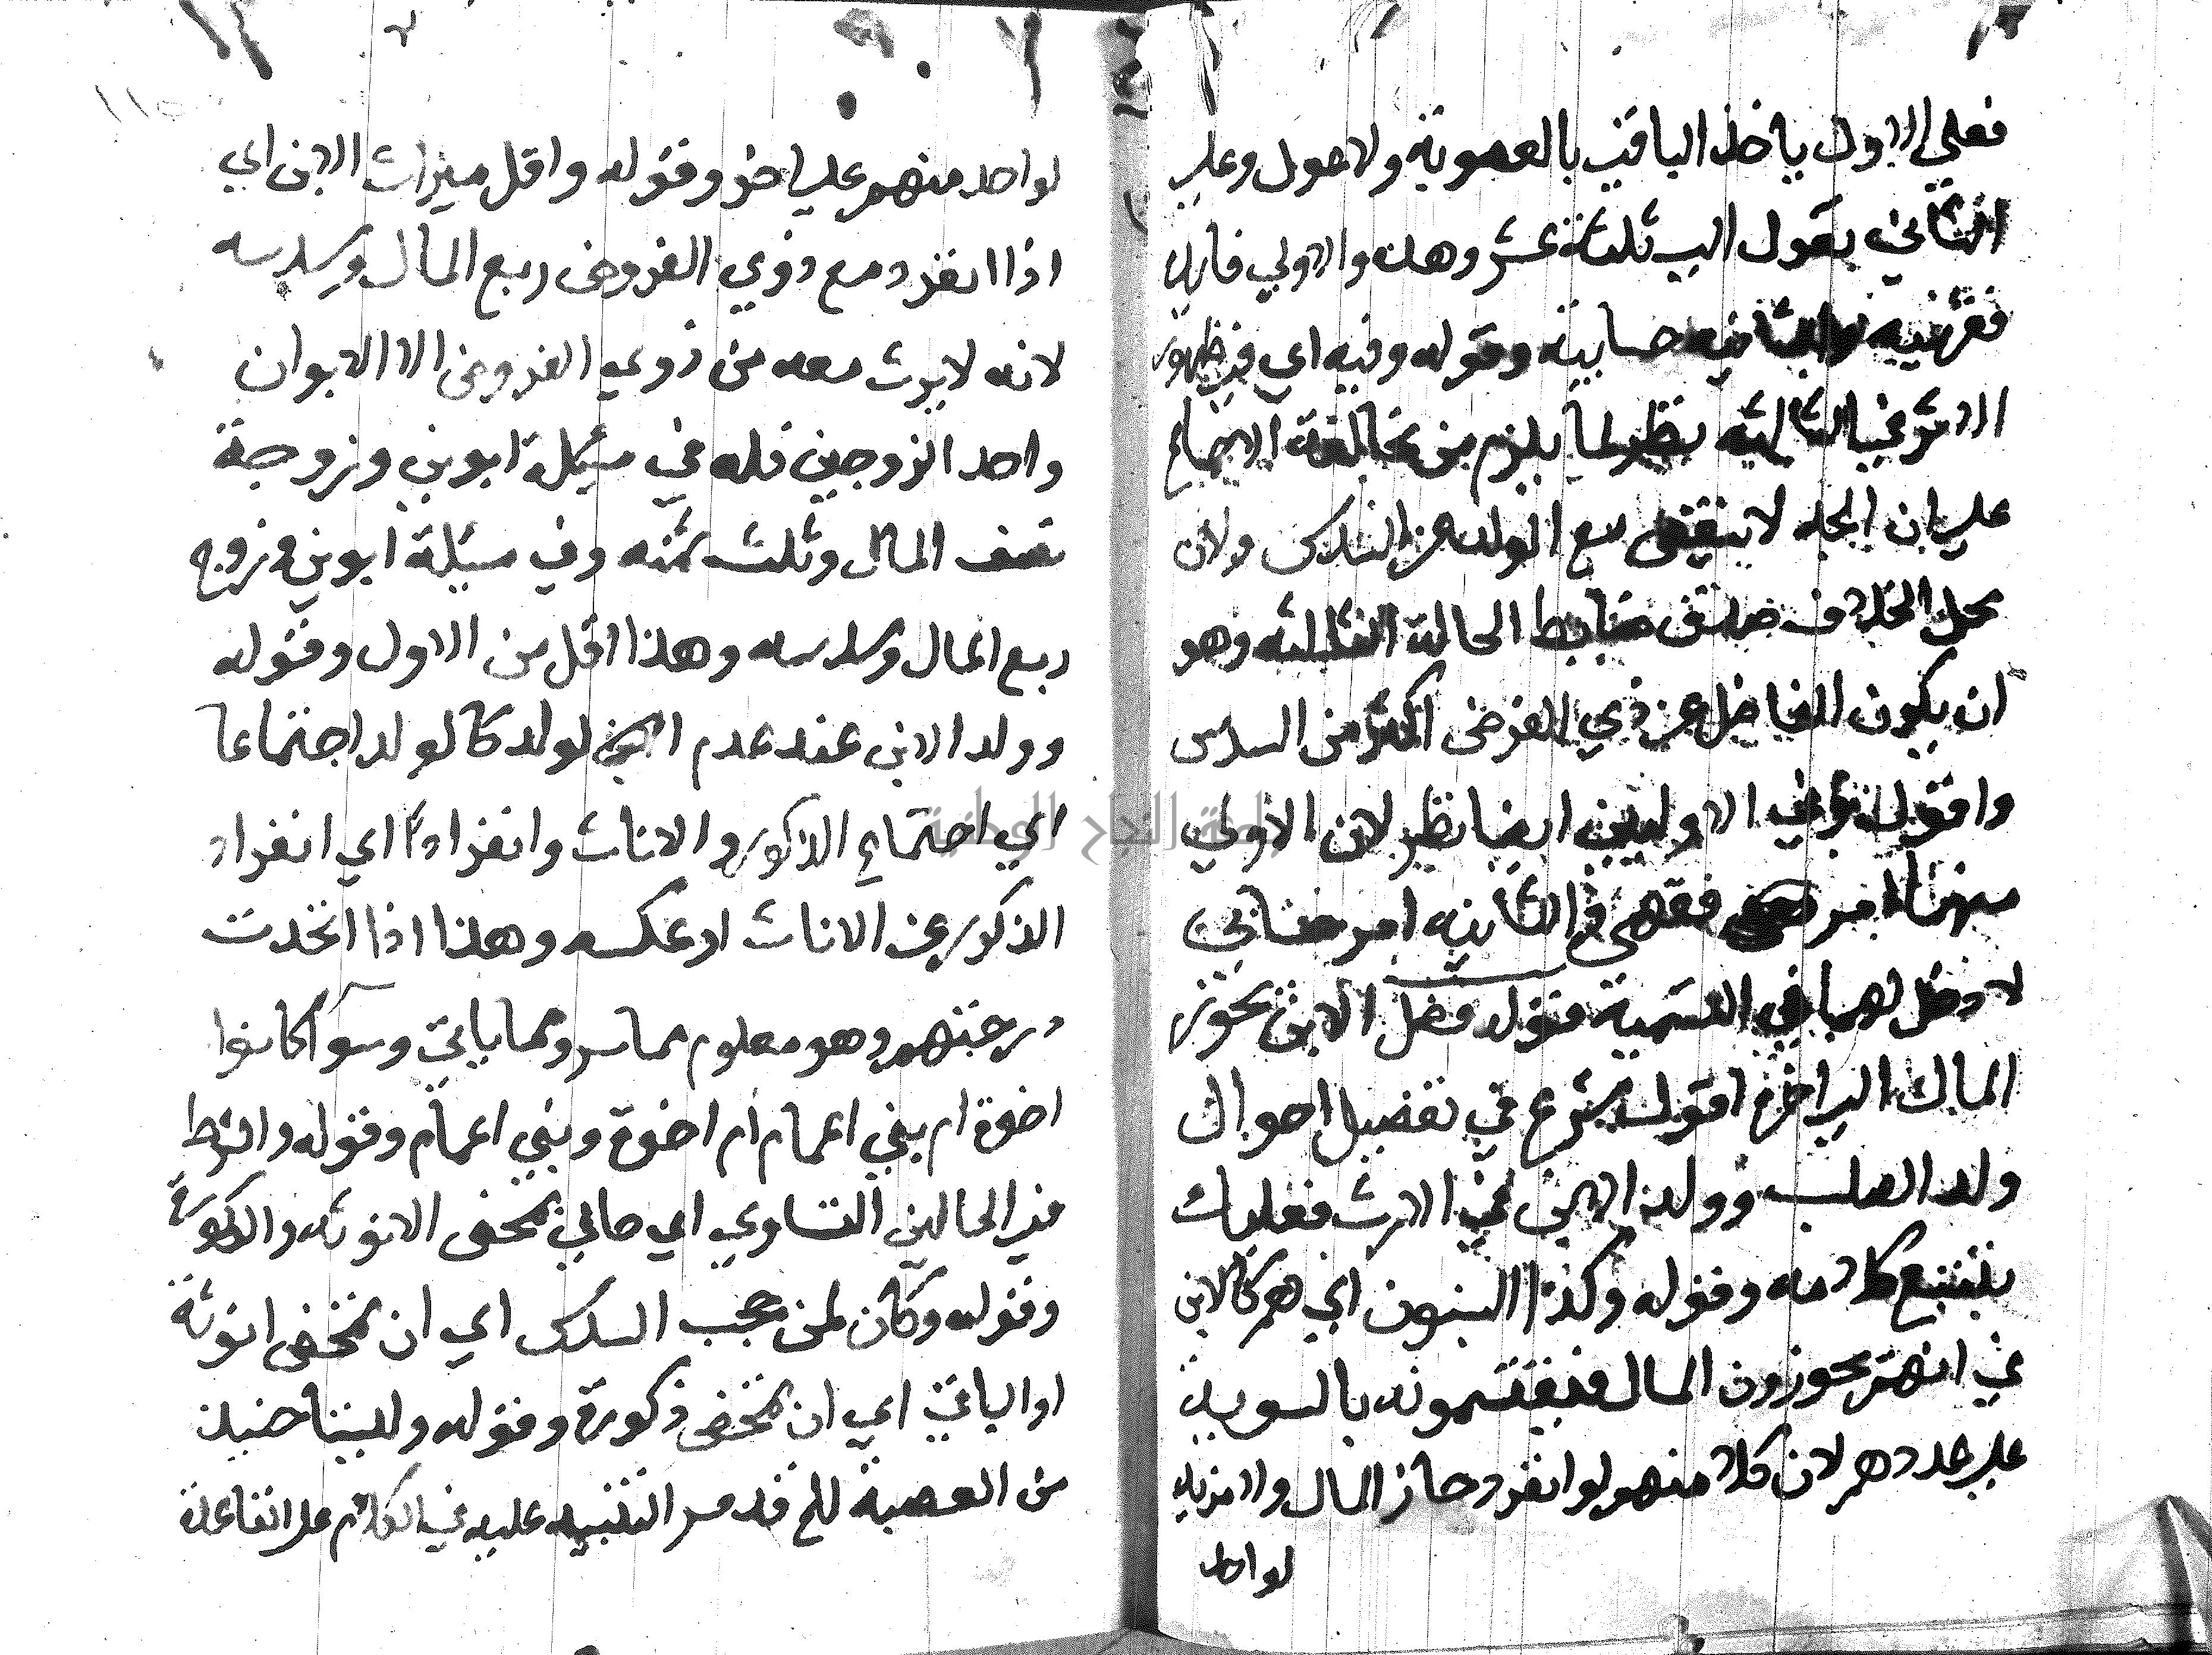 فعلي الاول ياخذ الباقي بالعصوبة ولاعول وعلي
الثاني يعول الي ثلاثة عشر وهذه والاولي فايدة
فقهية والثانيه حسابية وقوله وفيه اي في ظهور
الاثر في الثالثه نظر لما يلزم من مخالفة الاجماع
علي ان الجد لا ينقص مع الولد عن السدس ولان
محل الخلاف صدق ضابط الحالة الثالثه وهو
ان يكون الفاضل عن ذي الفرض اكثر من السدس
واقول وفي الاوليين ايضا نظر لان الاولي
منهما امر فقهي والثانيه امر حسابي
لا دخل لهما في القسمة قوله فصل الابن يحوز
المال الي اخره اقول شرع في تفصيل احوال
ولد الصلب وولد الابن في الارث فعليك
بتتبع كلامه وقوله وكذا البنون اي هم كالابن
في انهم يحوزون المال فيقتسمونه بالسوية
علي عددهم لان كلا منهم لو انفرد حاز المال ولا مزية
لواحد
١١٥
لواحد منهم علي اخر وقوله واقل ميراث الابن اي
اذا انفرد مع ذوي الفروض ربع المال وسدسه
لانه لا يرث معه من ذوي الفروض الا الابوان
واحد الزوجين فله في مسئلة ابوين وزوجة
نصف المال وثلث ثمنه وفي مسئلة ابوين وزوج
ربع المال وسدسه وهذا اقل من الاول وقوله
وولد الابن عند عدم الولد كالولد اجتماعا
اي اجتماع الذكور والاناث وانفرادا اي انفراد
الذكور عن الاناث او عكسه وهذا اذا اتحدت
درجتهم وهو معلوم مما مر ومما ياتي وسوآ كانوا
اخوة ام بني اعمام ام اخوة وبني اعمام وقوله واشرط
في الحالين التساوي اي حالي تمحض الانوثه والذكورة
وقوله وكان لمن حجب السدس اي ان تمحض انوثة
او الباقي اي ان تمحض ذكورة وقوله وللبنات حينئذ
من العصبة للخ قد مر التنبيه عليه في الكلام علي القاعدة